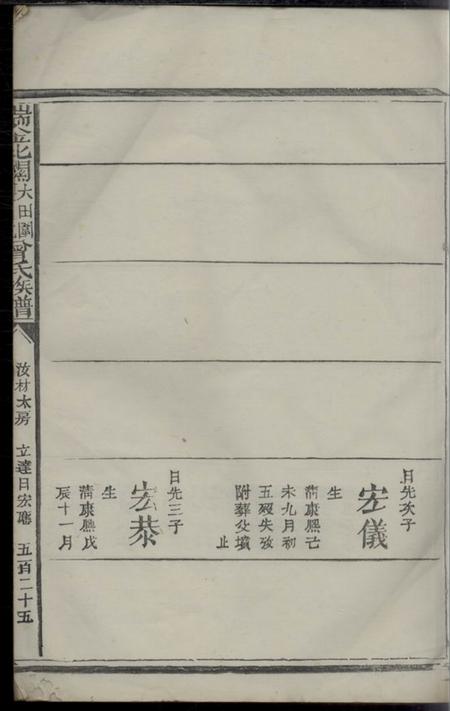 日先次子
宏儀
生
清康熙己
未九月初
五歿失攷
附葬父墳
止
日先三子
宏恭
生
清康熙戊
辰十一月
北關大田曾氏族譜
汝材太房 立達日宏聰 五百二十五